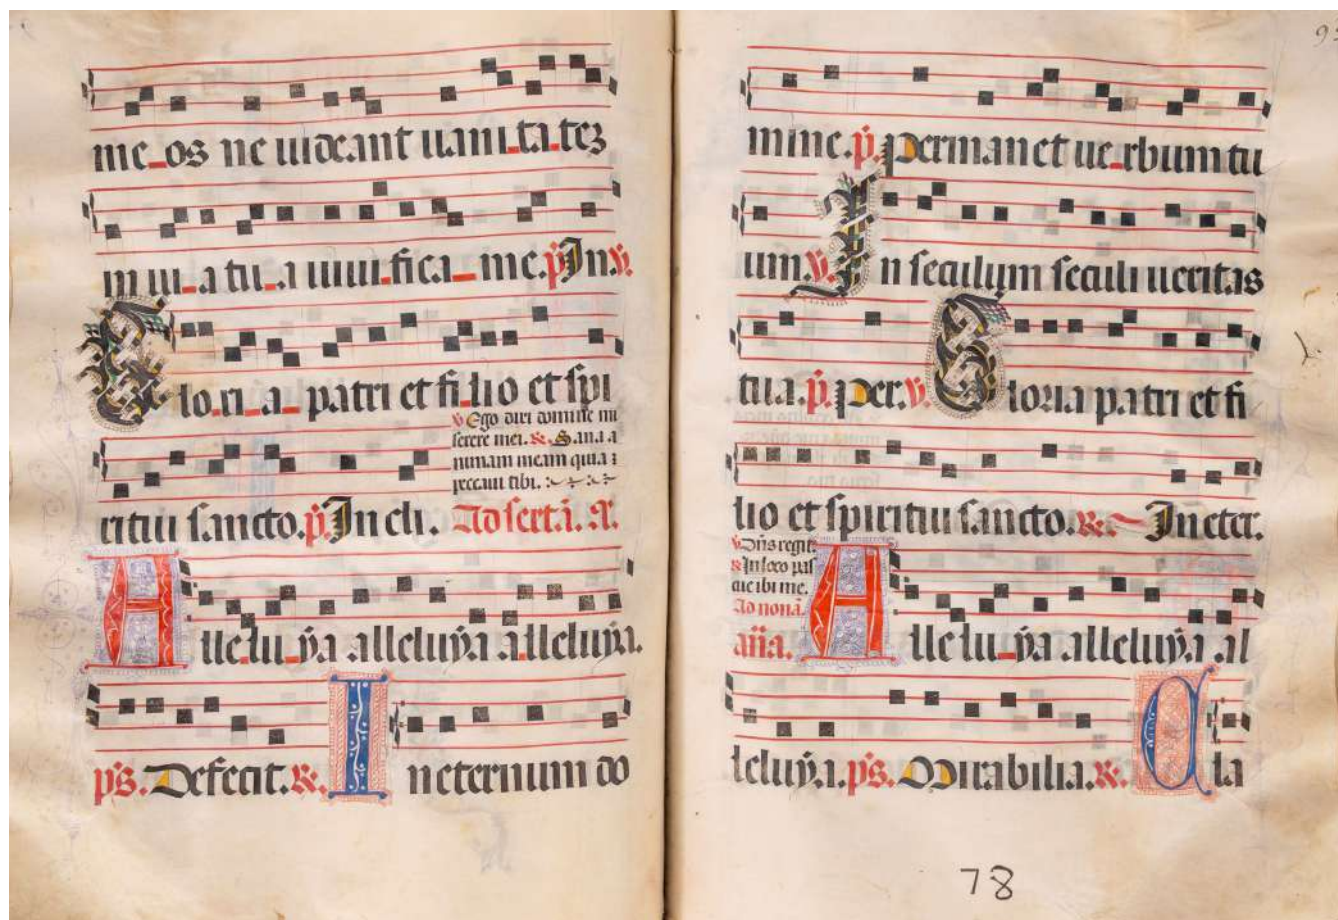 me_os ne uideant uani_ta_tez
in ui_a tu_a uiui_fica_ me. p̃. In. ℣.
Glo_ri_a_ patri et fi_lio et spi
℣ Ego dixi domine mi
serere mei. ℞. Sana a
nimam meam quia
peccaui tibi.
ritui sancto. p̃. In cli. Ad sextã. A.
Alle_lu_ÿa alleluÿa a_lleluÿa.
p̃s. Defecit. ℞. In eternum do
95
mine. p̃. Permanet ue_rbum tu
um. ℣. In seculum seculi ueritas
tua. p̃. Per. ℣. Gloria patri et fi
lio et spiritui sancto. ℞. In eter.
℣ Dñs regit.
℞ In loco pas
cue ibi me.
Ad nonã.
añã. Alle lu_ÿa alleluÿa al
leluÿa. p̃s. Mirabilia. ℞. Cla
78